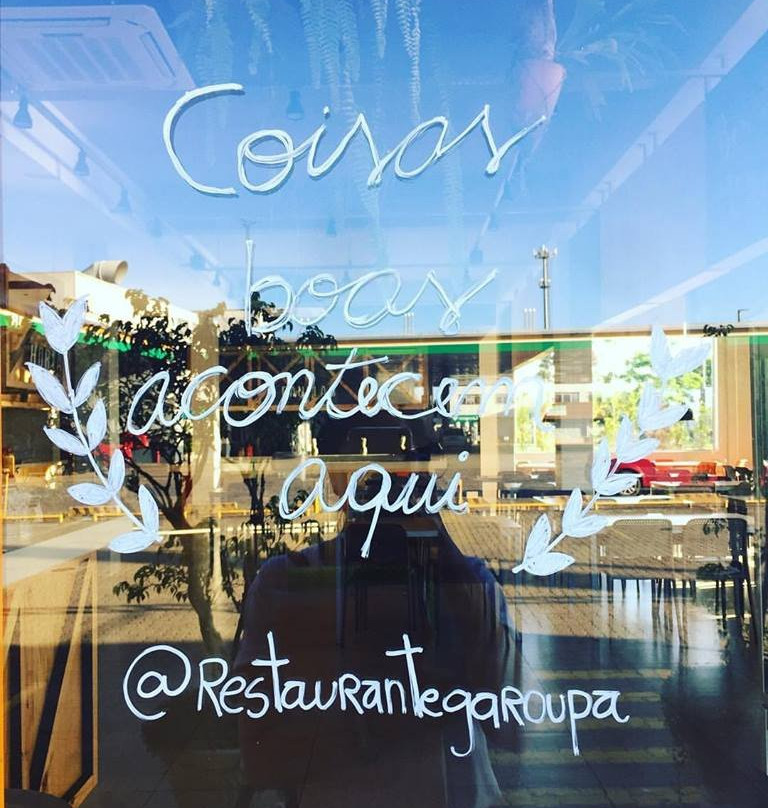 Coisas
boas
acontecem
aqui
@Restaurantegaroupa